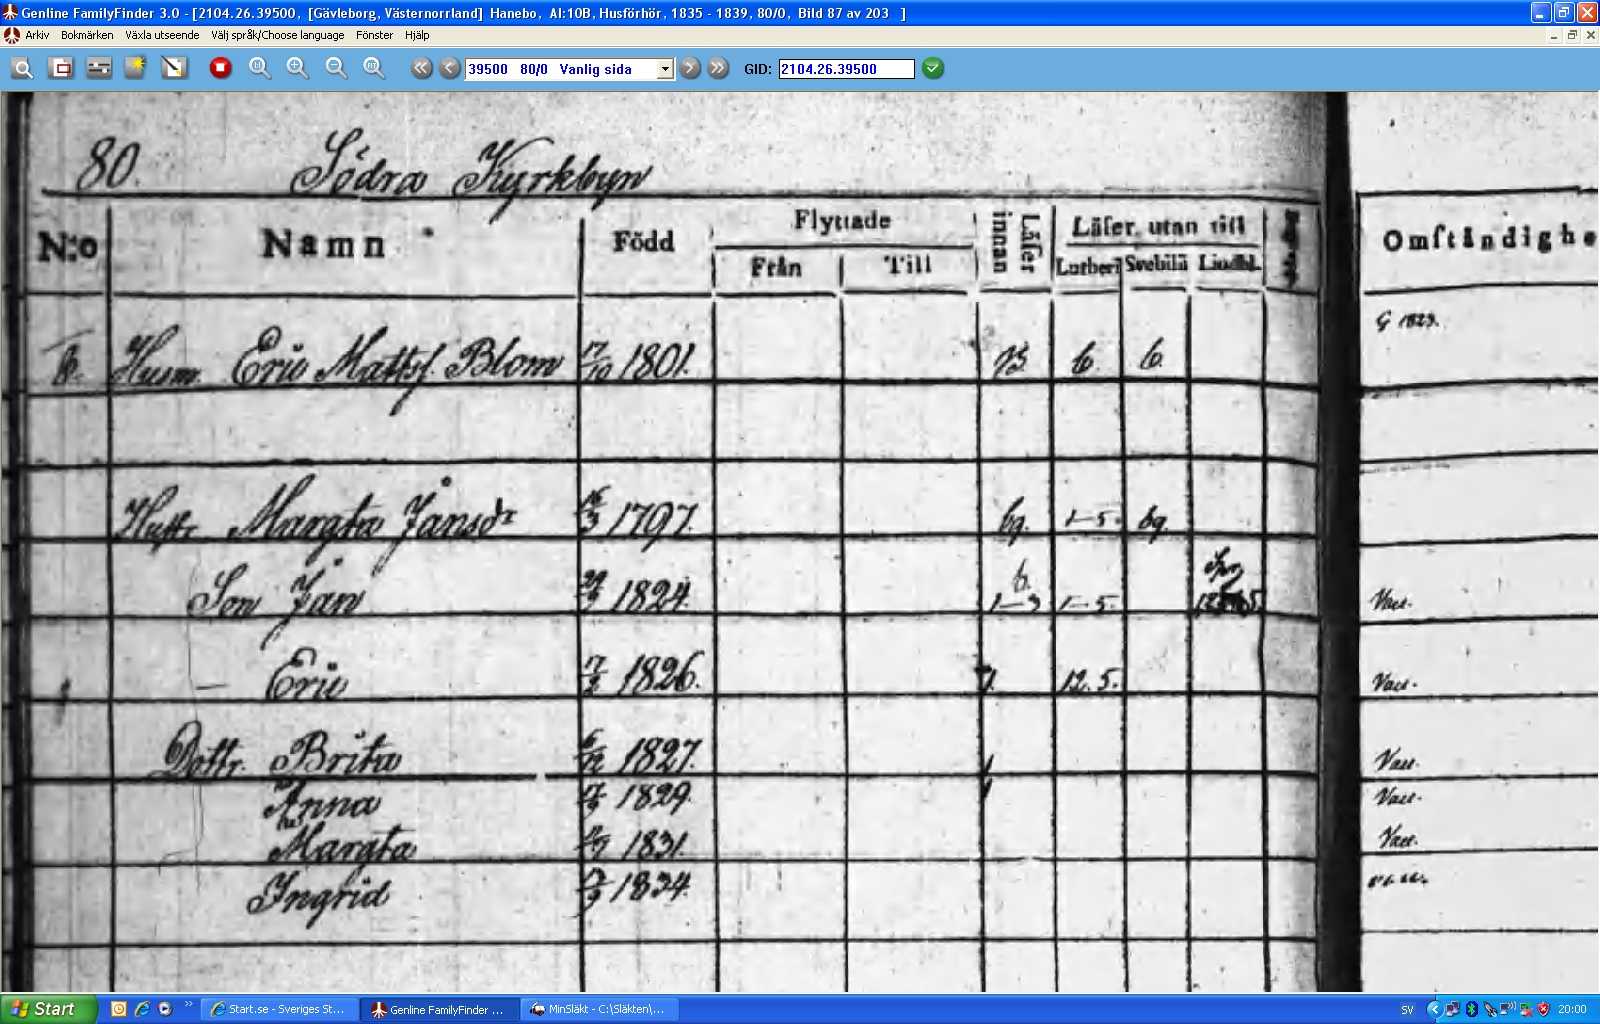 Genline FamilyFinder 3.0 - [2104.26.39500, [Gävleborg, Västernorrland] Hanebo, AI:10B, Husförhör, 1835 - 1839, 80/0, Bild 87 av 203 ]
Arkiv Bokmärken Växla utseende Välj språk/Choose language Fönster Hjälp
39500 80/0 Vanlig sida GID: 2104.26.39500
80. Södra Kyrkbyn
N:o Namn Född Flyttade Från Till Läser innan Läser utan till Lutheri Svebilii Lindbl. Omständighe
G 1823.
Husm. Eric Mattss. Blom 17/10 1801. b. b.
Hustr. Margta Jansdr 1797. bg. 1-5. bg.
b.
Son Jan 1824. 1-3 1-5. Vacc.
Eric 1826. 12.5. Vacc.
Dottr. Brita 6/12 1827. Vacc.
Anna 1829. Vacc.
Margta 1831. Vacc.
Ingrid 1834.
Start Start.se - Sveriges St... Genline FamilyFinder ... MinSläkt - C:\Släkten\... SV 20:00